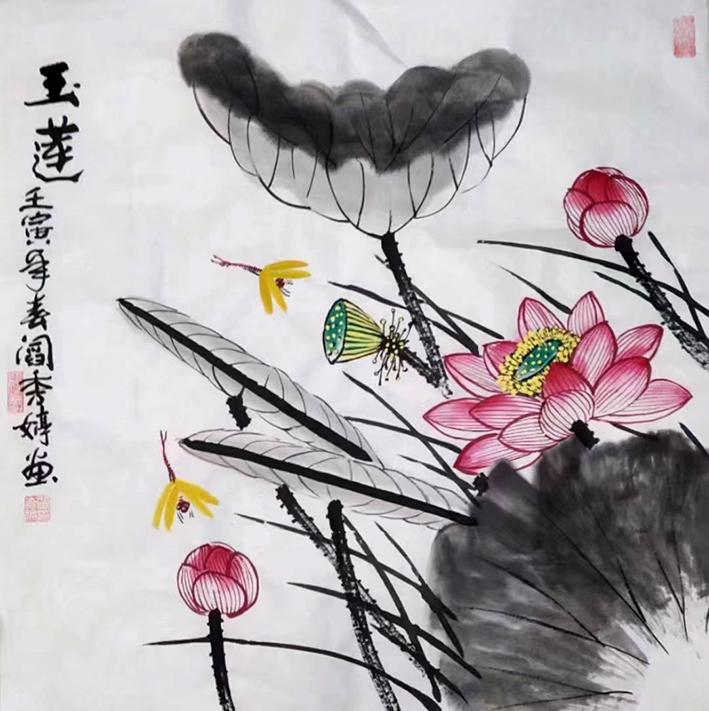 玉莲
壬寅年春阎秀婷画